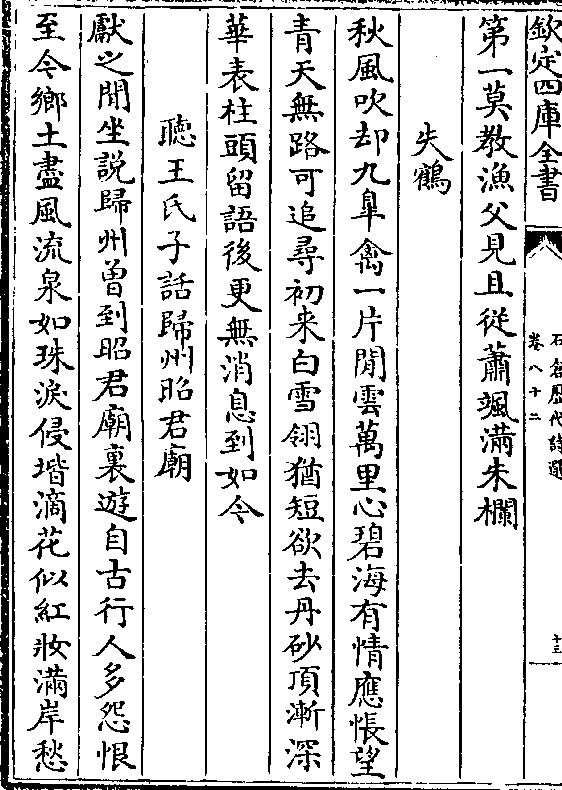 欽定四庫全書
石倉歷代詩選
卷八十二
十三
第一莫教漁父見且從蕭颯滿朱欄
失鶴
秋風吹却九臯禽一片閒雲萬里心碧海有情應悵望
青天無路可追尋初來白雪翎猶短欲去丹砂頂漸深
華表柱頭留語後更無消息到如今
聽王氏子話歸州昭君廟
獻之閒坐説歸州曽到昭君廟裏遊自古行人多怨恨
至今鄉土盡風流泉如珠淚侵堦滴花似紅妝滿岸愁